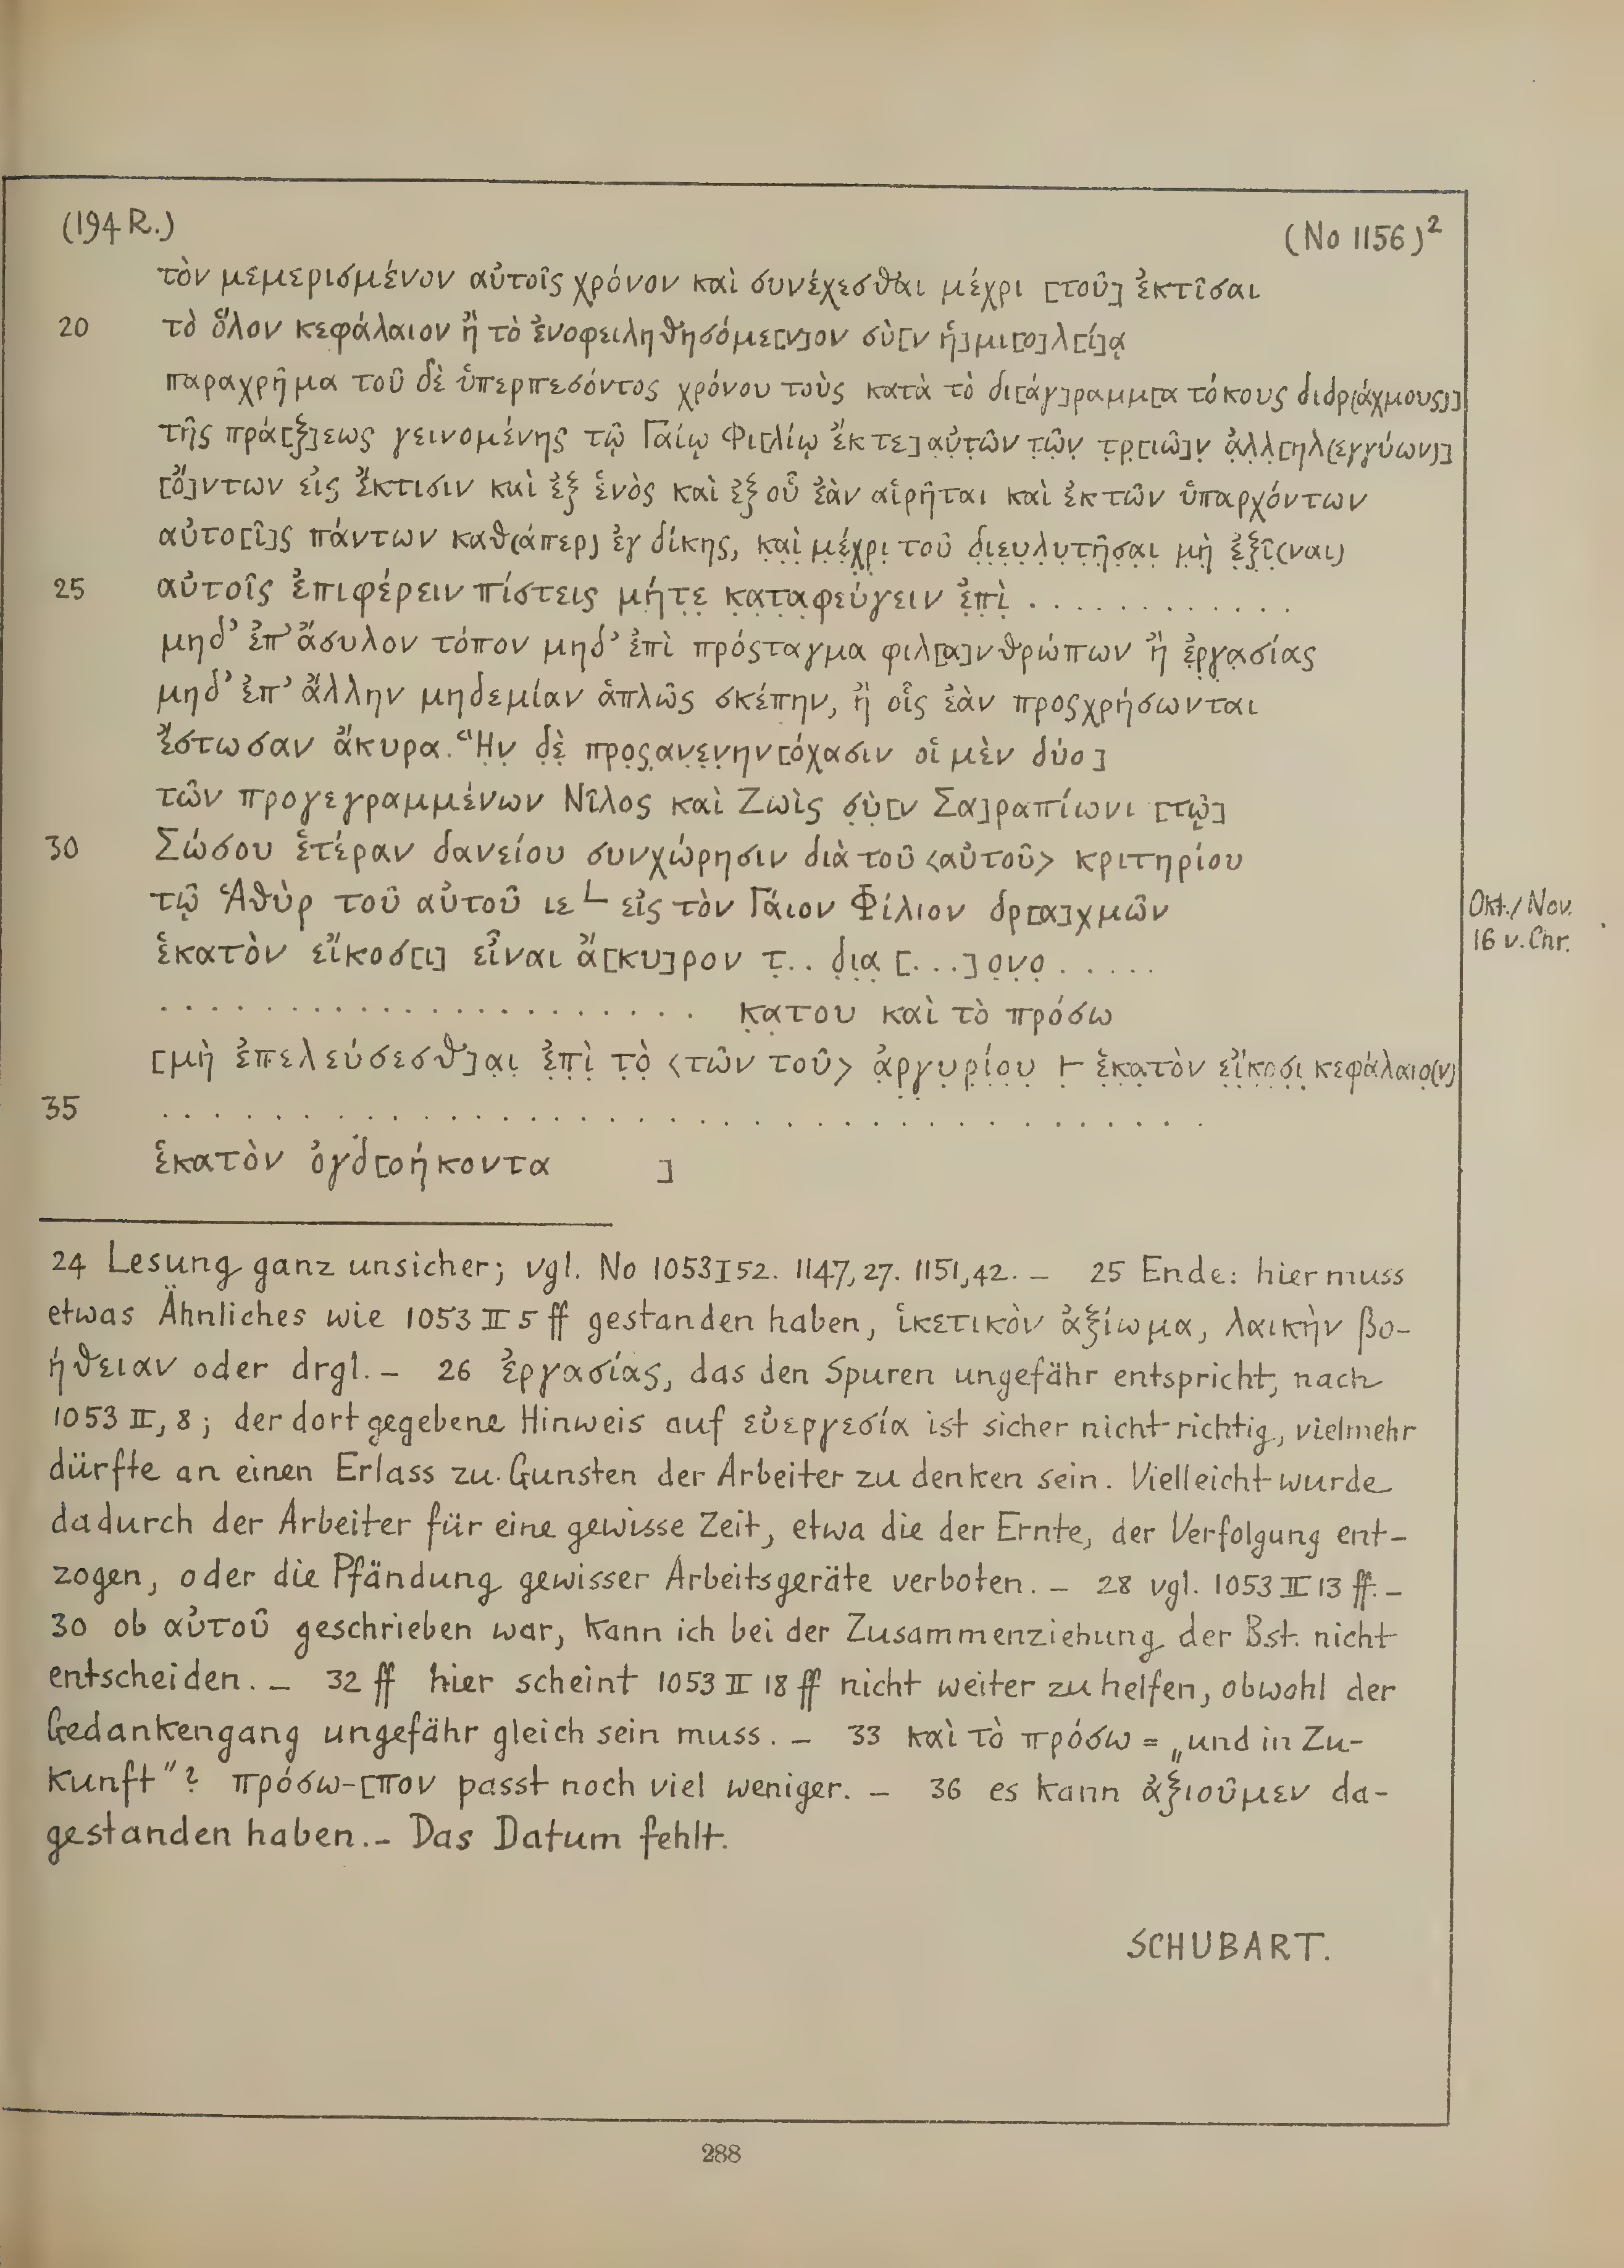 (194 R.) (No 1156)²
τὸν μεμερισμένον αὐτοῖς χρόνον καὶ συνέχεσθαι μέχρι [τοῦ] ἐκτῖσαι
20 τὸ ὅλον κεφάλαιον ἢ τὸ ἐνοφειληθησόμε[ν]ον σὺ[ν ἡ]μι[ο]λ[ί]ᾳ
παραχρῆμα τοῦ δὲ ὑπερπεσόντος χρόνου τοὺς κατὰ τὸ δι[άγ]ραμμ[α τόκους διδρ(άχμους)]
τῆς πρά[ξ]εως γεινομένης τῷ Γαίῳ Φι[λίῳ ἔκ τε] α̣ὐ̣τ̣ῶν τ̣ῶ̣ν̣ τ̣ρ̣[ιῶ]ν̣ ἀ̣λ̣λ̣[ηλ(εγγύων)]
[ὄ]ντων εἰς ἔκτισιν καὶ ἐξ ἑνὸς καὶ ἐξ οὗ ἐὰν αἱρῆται καὶ ἐκ τῶν ὑπαρχόντων
αὐτο[ῖ]ς πάντων καθ(άπερ) ἐγ δίκης, κ̣α̣ὶ̣ μ̣έ̣χ̣ρ̣ι̣ τοῦ δ̣ι̣ε̣υ̣λ̣υ̣τ̣ῆ̣σ̣α̣ι̣ μ̣ὴ̣ ἐ̣ξ̣ῖ̣(ναι)
25 αὐτοῖς ἐπιφέρειν πίστεις μή̣τ̣ε̣ κ̣α̣τ̣α̣φ̣εύγειν ἐ̣π̣ὶ̣ . . . . . . . . . . . .
μηδ’ ἐπ’ ἄσυλον τόπον μηδ’ ἐπὶ πρόςταγμα φιλ[α]νθρώπων ἢ ἐ̣ρ̣γ̣α̣σίας
μηδ’ ἐπ’ ἄλλην μηδεμίαν ἁπλῶς σκέπην, ἢ οἷς ἐὰν προςχρήσωνται
ἔστωσαν ἄκυρα. Ἣ̣ν̣ δ̣ὲ̣ πρ̣ο̣ς̣αν̣ε̣ν̣ην[όχασιν οἱ μὲν δύο]
τῶν προγεγραμμένων Νῖλος καὶ Ζωὶς σ̣ὺ̣[ν Σα]ραπίωνι [τῷ]
30 Σώσου ἑτέραν δανείου συνχώρησιν διὰ τοῦ <αὐτοῦ> κριτηρίου
τῷ Ἁθὺρ τοῦ αὐτοῦ ιε └ εἰς τὸν Γάιον Φίλιον δρ[α]χμῶν
Okt./Nov.
16 v. Chr.
ἑκατὸν εἴκοσ[ι] εἶναι ἄ[κυ]ρον τ̣. . δ̣ι̣α̣ [. . .] ο̣ν̣ο̣ . . . . .
. . . . . . . . . . . . . . . . . . . . . κ̣α̣του καὶ τὸ πρόσω
[μὴ ἐπελεύσεσθ]α̣ι̣ ἐ̣π̣ὶ̣ τ̣ὸ̣ <τῶν τοῦ> ἀ̣ρ̣γ̣υ̣ρ̣ί̣ο̣υ̣ ⊢ ἑ̣κ̣α̣τὸν ε̣ἴ̣κ̣ο̣σ̣ι̣ κεφάλαιο̣(ν)
35 . . . . . . . . . . . . . . . . . . . . . . . . . . . . . . . . . . . .
ἑκατὸν ὀγδ[οήκοντα ]
24 Lesung ganz unsicher; vgl. No 1053 I 52. 1147, 27. 1151, 42. – 25 Ende: hier muss
etwas Ähnliches wie 1053 II 5 ff gestanden haben, ἱκετικὸν ἀξίωμα, λαικὴν βο-
ήθειαν oder drgl. – 26 ἐργασίας, das den Spuren ungefähr entspricht, nach
1053 II, 8; der dort gegebene Hinweis auf εὐεργεσία ist sicher nicht richtig, vielmehr
dürfte an einen Erlass zu Gunsten der Arbeiter zu denken sein. Vielleicht wurde
dadurch der Arbeiter für eine gewisse Zeit, etwa die der Ernte, der Verfolgung ent-
zogen, oder die Pfändung gewisser Arbeitsgeräte verboten. – 28 vgl. 1053 II 13 ff. –
30 ob αὐτοῦ geschrieben war, kann ich bei der Zusammenziehung der Bst. nicht
entscheiden. – 32 ff hier scheint 1053 II 18 ff nicht weiter zu helfen, obwohl der
Gedankengang ungefähr gleich sein muss. – 33 καὶ τὸ πρόσω = „und in Zu-
kunft“? πρόσω-[πον passt noch viel weniger. – 36 es kann ἀξιοῦμεν da-
gestanden haben. – Das Datum fehlt.
SCHUBART.
288